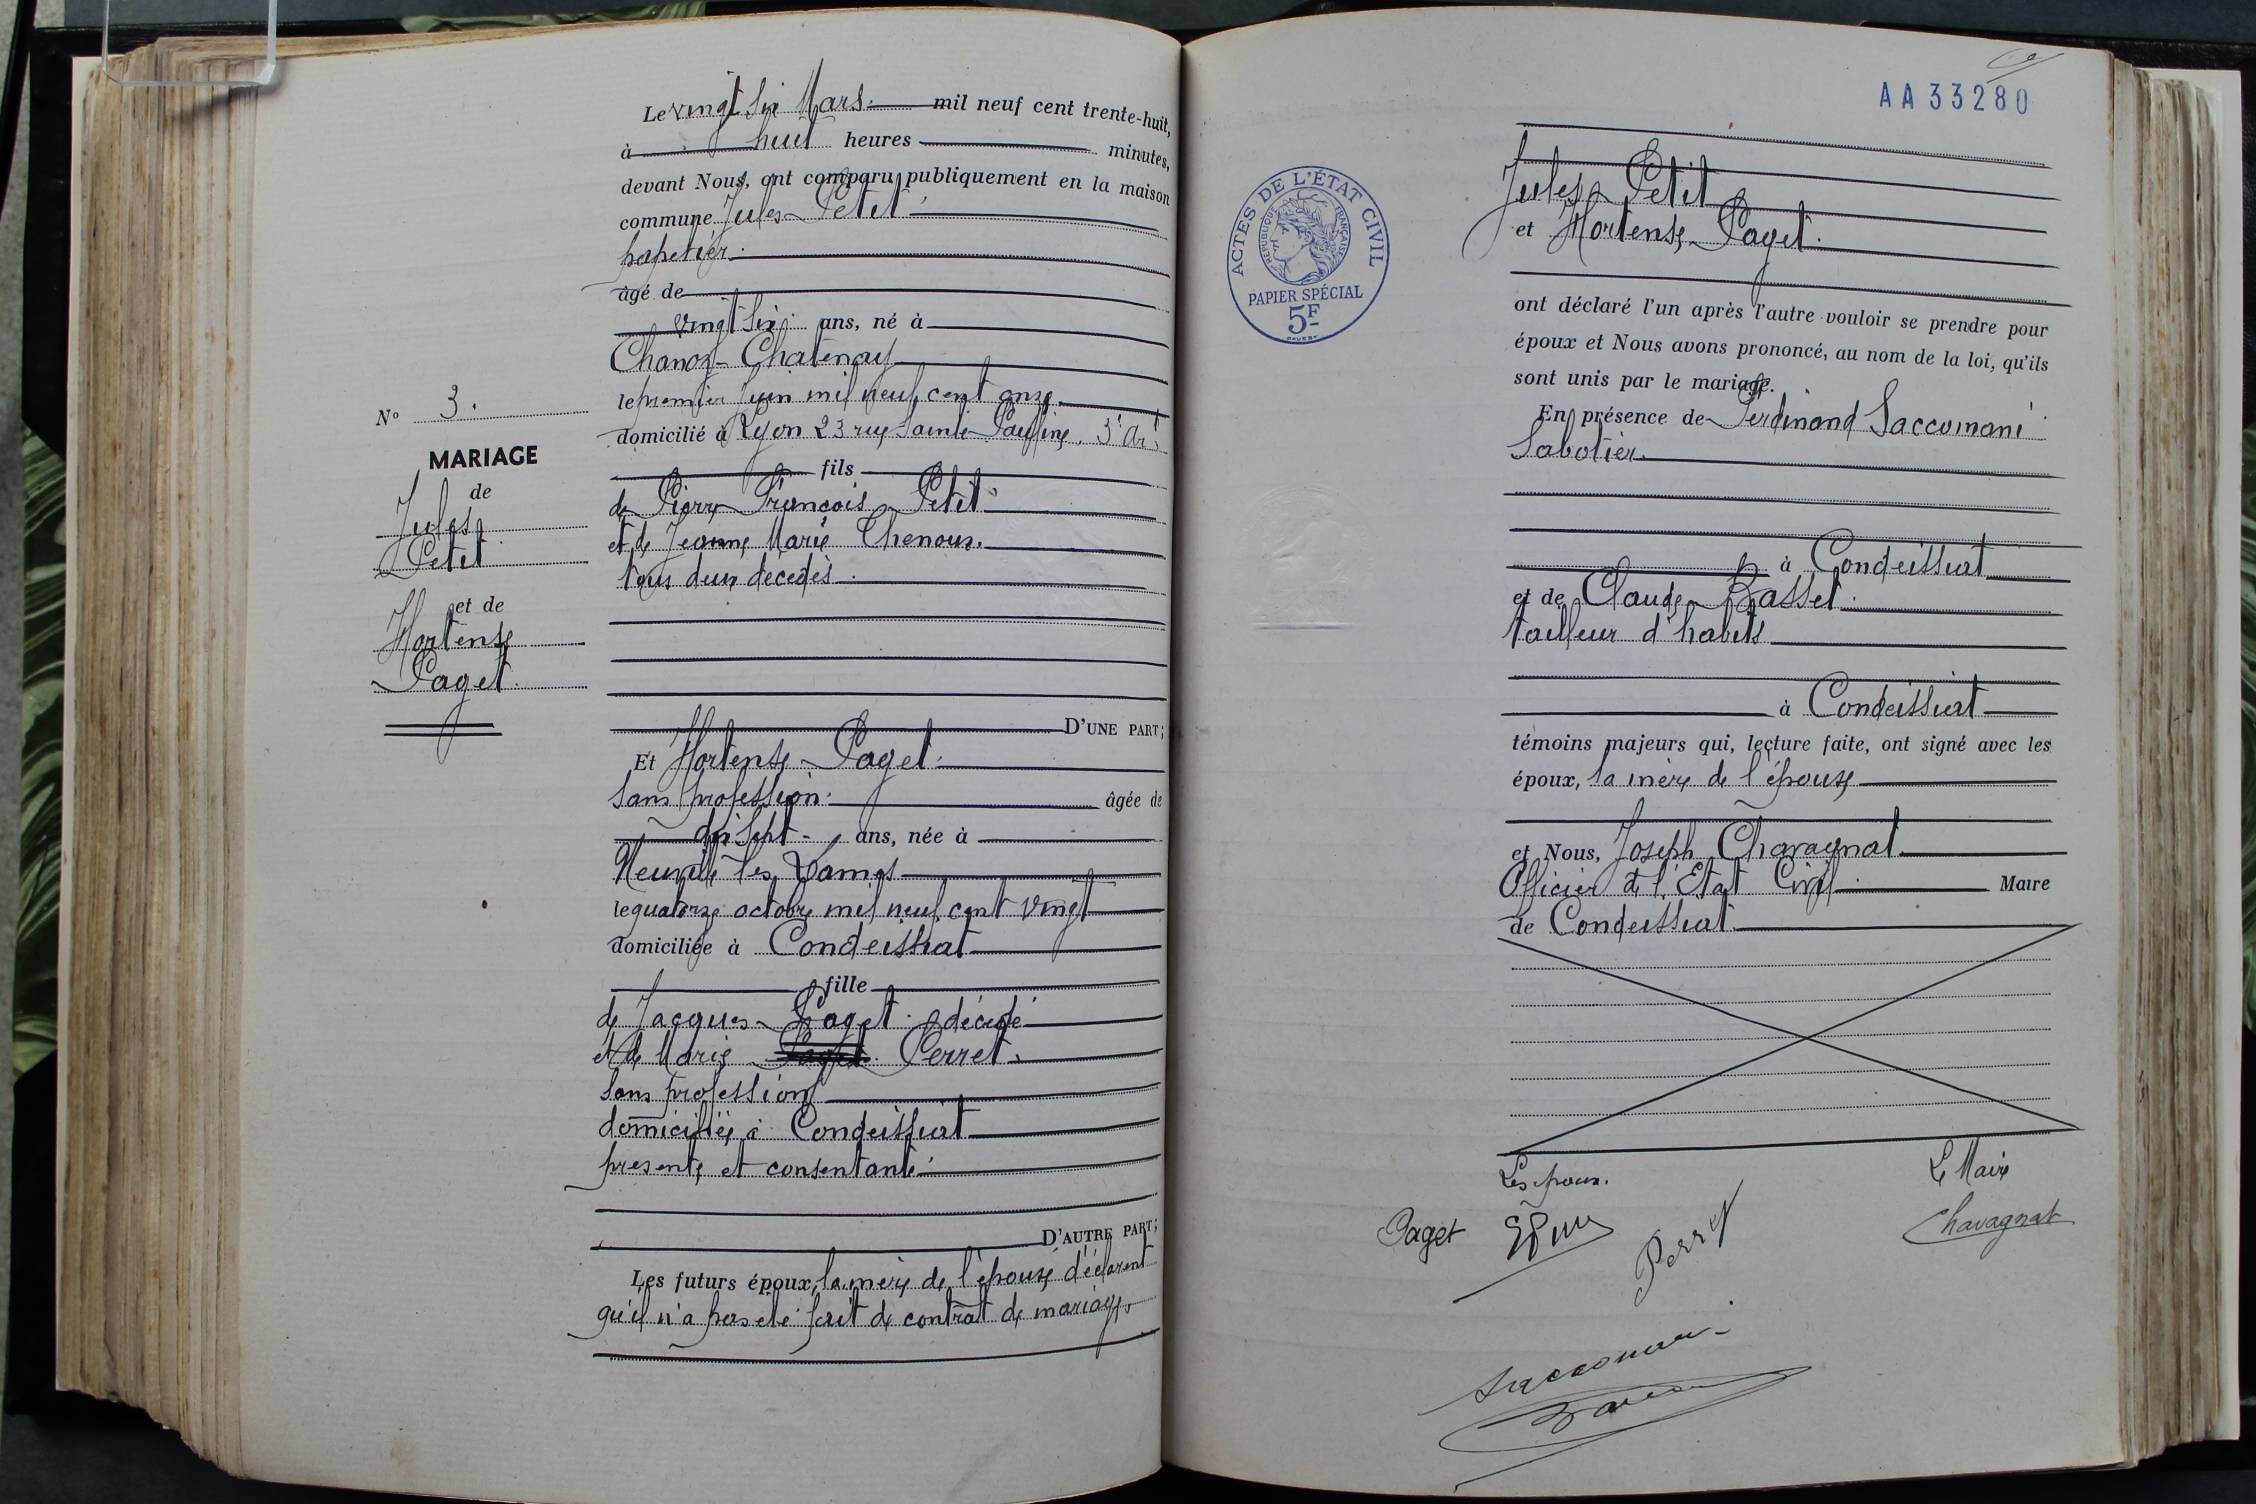 Le vingt six Mars. mil neuf cent trente-huit,
à huit heures minutes,
devant Nous, ont comparu publiquement en la maison
commune Jules Petit
papetier.
âgé de
vingt six ans, né à
Chanoz-Chatenay
le premier Juin mil neuf cent onze.
domicilié à Lyon 23 rue Sainte Pauline. 3e Art.
fils
de Pierre François Petit
et de Jeanne Marie Thenoux.
tous deux décédés.
N° 3.
MARIAGE
de
Jules
Petit
et de
Hortense
Paget.
D'UNE PART;
Et Hortense Paget.
sans profession. âgée de
dix sept ans, née à
Neuville les Dames
le quatorze octobre mil neuf cent vingt
domiciliée à Condeissiat
fille
de Jacques Paget. décédé
et de Marie Paget Perret.
sans profession
domiciliée à Condeissiat
presente et consentante.
D'AUTRE PART;
Les futurs époux, la mère de l'épouse déclarent
qu'il n'a pas été fait de contrat de mariage.
AA 33280
ACTES DE L'ÉTAT CIVIL
RÉPUBLIQUE FRANÇAISE
PAPIER SPÉCIAL
5F
Jules Petit
et Hortense Paget.
ont déclaré l'un après l'autre vouloir se prendre pour
époux et Nous avons prononcé, au nom de la loi, qu'ils
sont unis par le mariage.
En présence de Ferdinand Saccomani
Sabotier.
à Condeissiat
et de Claude Basset.
tailleur d'habits
à Condeissiat
témoins majeurs qui, lecture faite, ont signé avec les
époux, la mère de l'épouse
et Nous, Joseph Chavagnat
Officier de l'Etat Civil. Maire
de Condeissiat.
Les époux.
Le Maire
Paget
Perret
Chavagnat
Saccomani